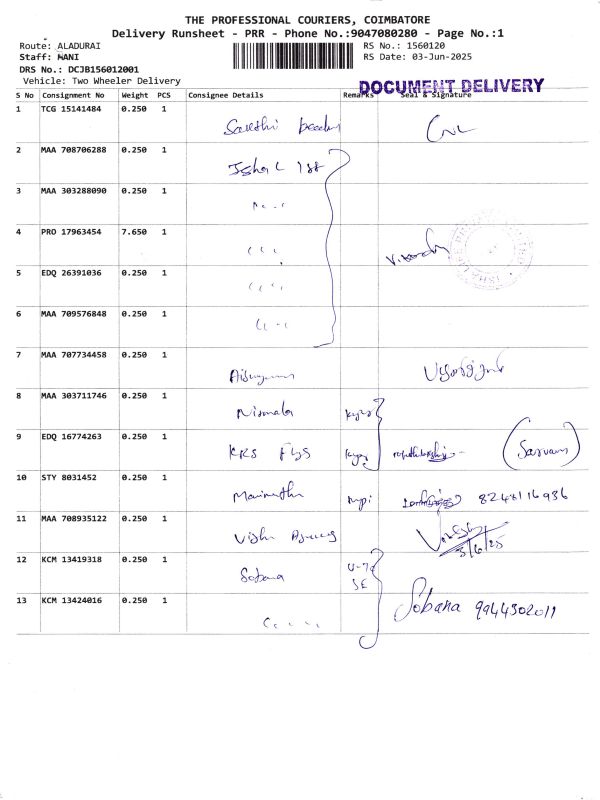 THE PROFESSIONAL COURIERS, COIMBATORE
Delivery Runsheet - PRR - Phone No.:9047080280 - Page No.:1
Route: ALADURAI
RS No.: 1560120
Staff: MANI
RS Date: 03-Jun-2025
DRS No.: DCJB156012001
Vehicle: Two Wheeler Delivery
DOCUMENT DELIVERY
S No Consignment No Weight PCS Consignee Details Remarks Seal & Signature
1 TCG 15141484 0.250 1
2 MAA 708706288 0.250 1
3 MAA 303288090 0.250 1
4 PRO 17963454 7.650 1
5 EDQ 26391036 0.250 1
6 MAA 709576848 0.250 1
7 MAA 707734458 0.250 1
8 MAA 303711746 0.250 1 Nirmala
9 EDQ 16774263 0.250 1 KRS (Sarvam)
10 STY 8031452 0.250 1 Marimuthu 8248116936
11 MAA 708935122 0.250 1 3/6/25
12 KCM 13419318 0.250 1 Sobana
13 KCM 13424016 0.250 1 Sobana 9944302011